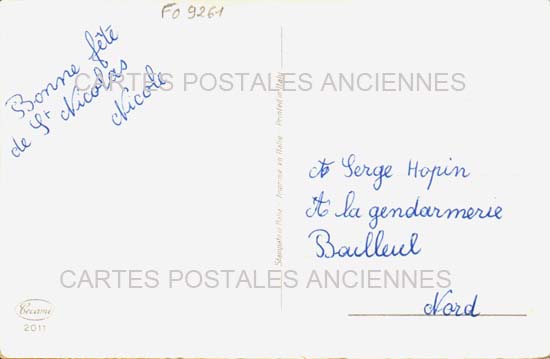 FO 9261
Bonne fête
de St Nicolas
Nicole
CARTES POSTALES ANCIENNES
A Serge Hopin
A la gendarmerie
Bailleul
Nord
CARTES POSTALES ANCIENNES
Stampato in Italia - Imprimé en Italie - Printed in Italy
Cecami
2011